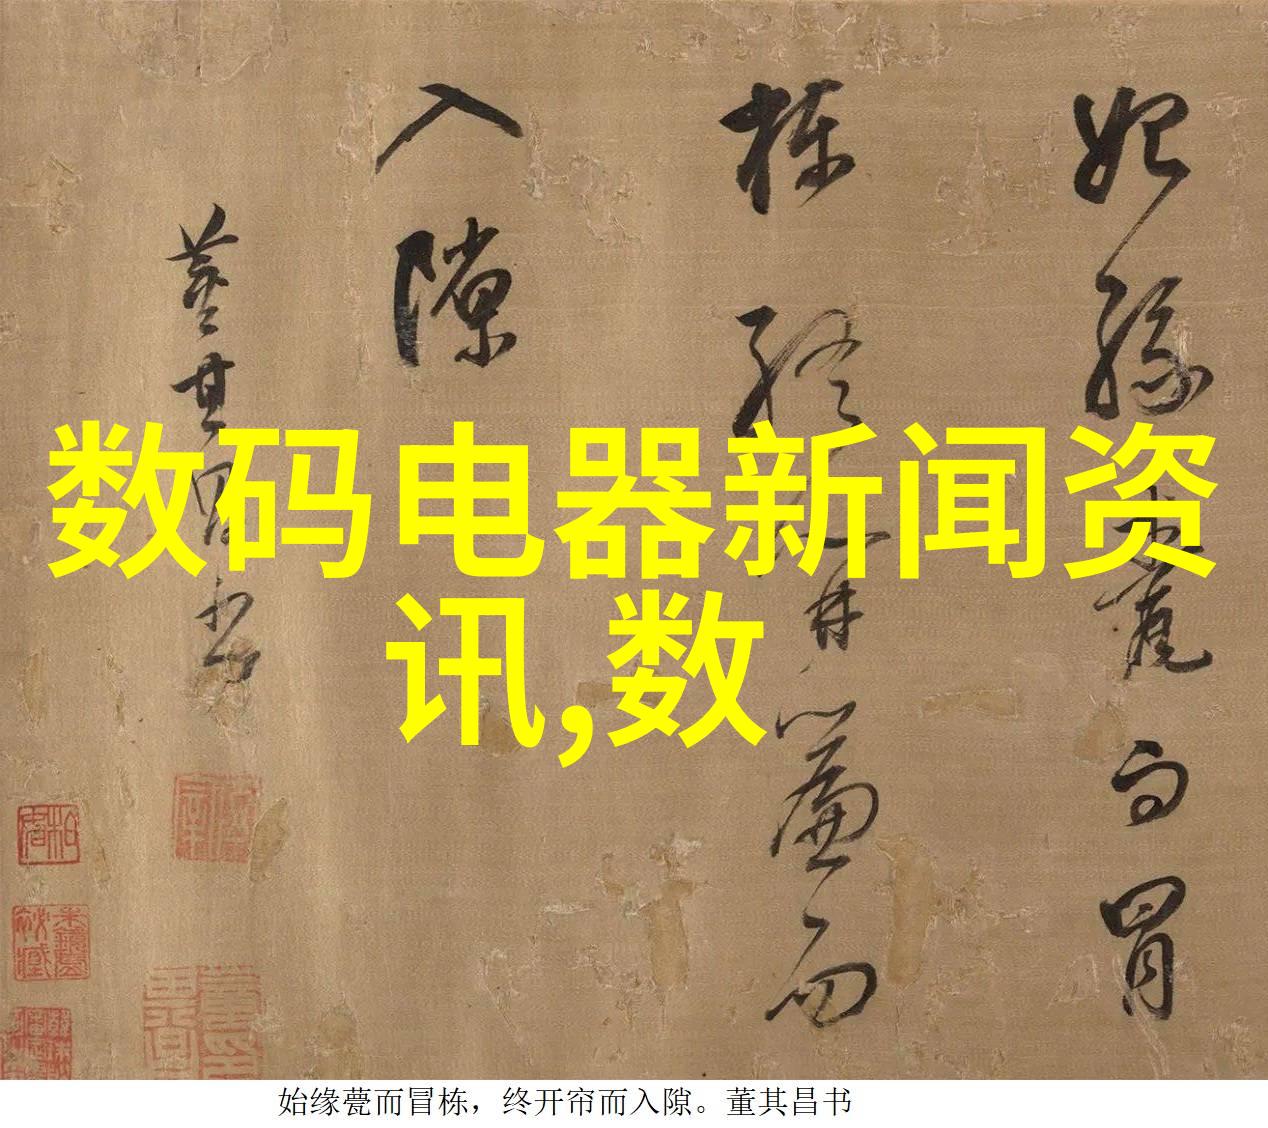 始缘甍而冒
栋终开帘而
入隙
董其昌书
数码电器新闻资
讯,数
始缘甍而冒栋，终开帘而入隙。董其昌书